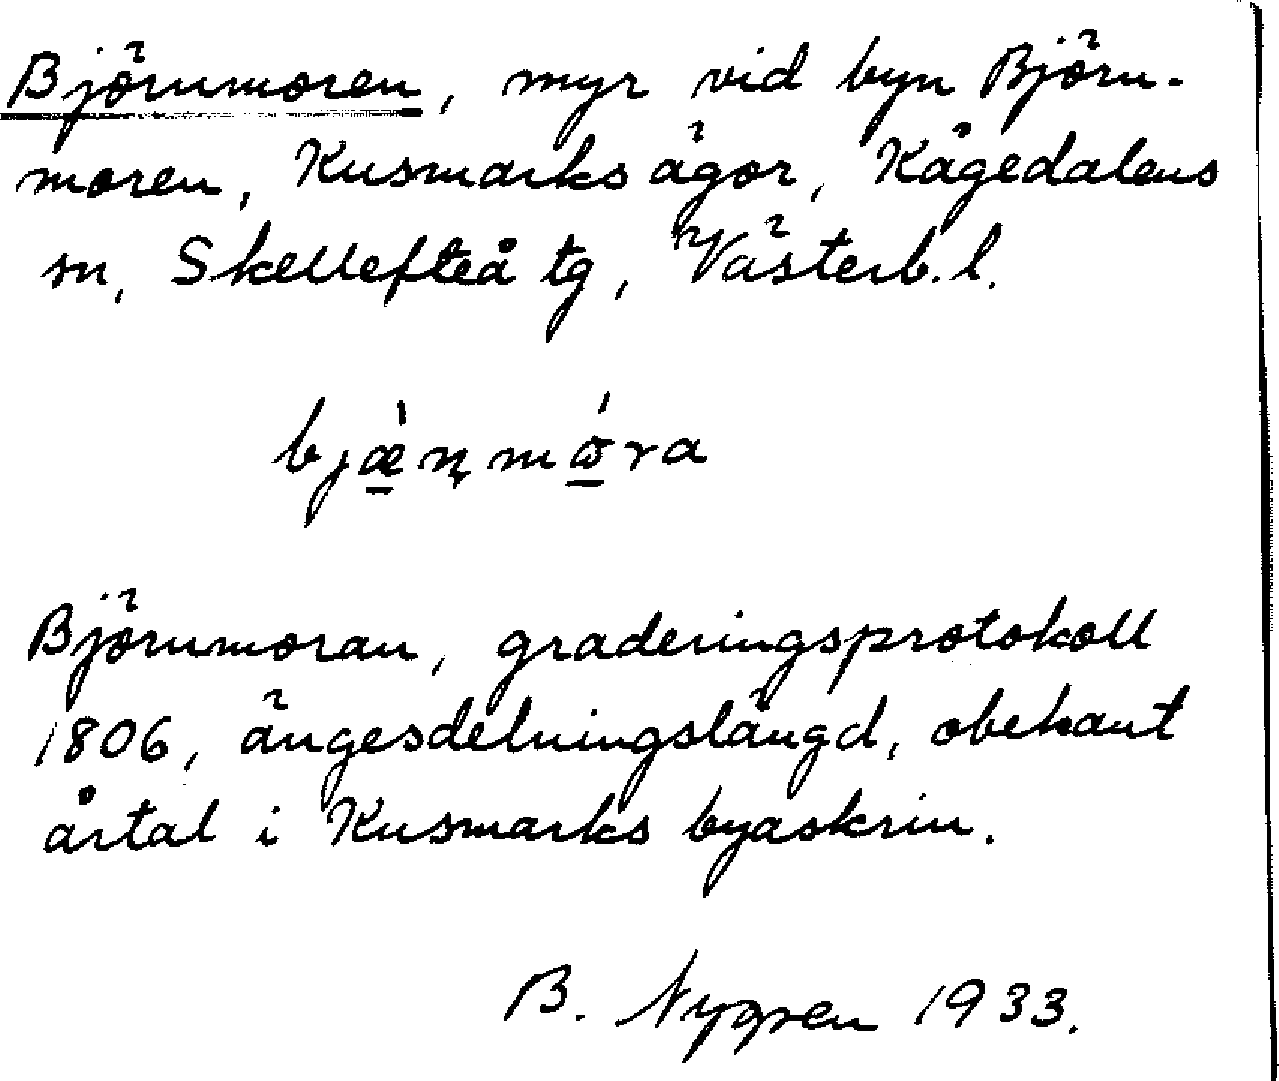 Björnmoren, myr vid byn Björn-
moren, Kusmarks ägor, Kågedalens
sn, Skellefteå tg, Västerb. l.
Björnmoran, graderingsprotokoll
1806, ängesdelningslängd, obekant
årtal i Kusmarks byaskrin.
B. Nygren 1933.